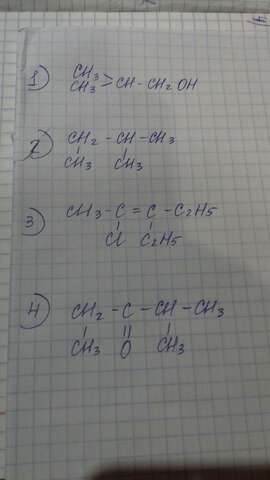 1) CH3
CH3 > CH - CH2 OH
2) CH2 - CH - CH3
CH3 CH3
3) CH3 - C = C - C2H5
Cl C2H5
4) CH2 - C - CH - CH3
CH3 O CH3